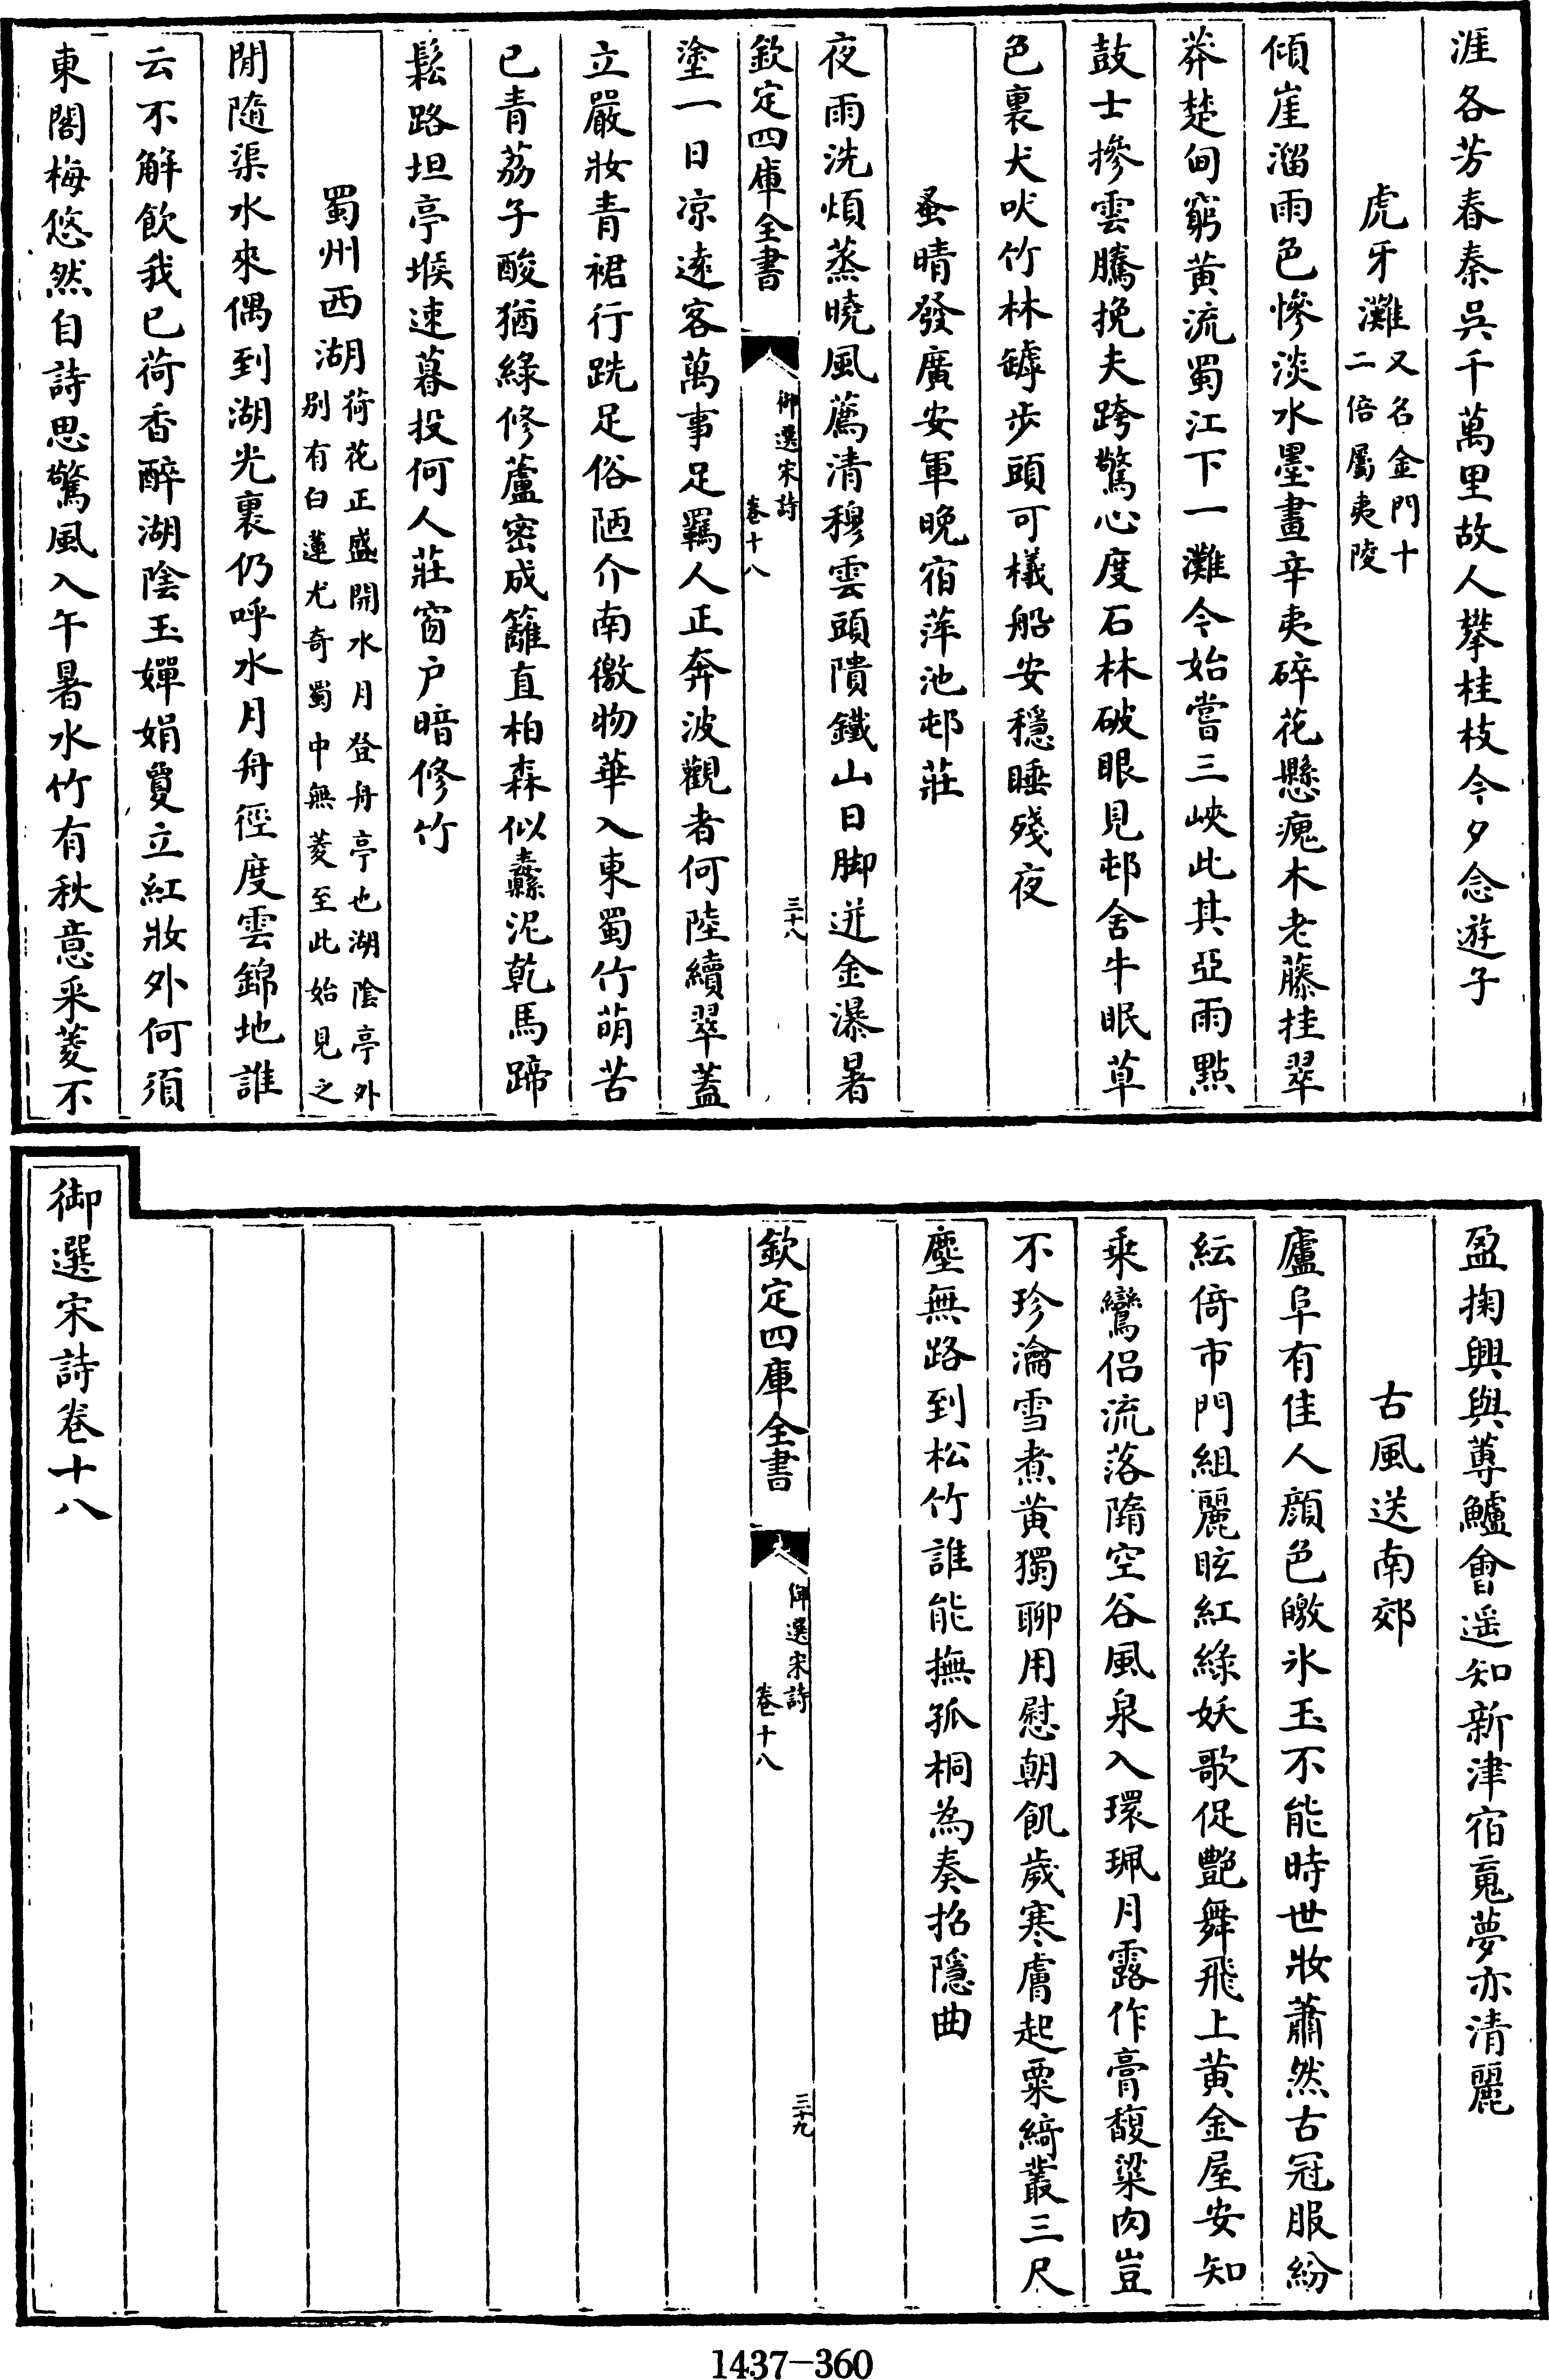 涯各芳春秦吳千萬里故人攀桂枝今夕念遊子
虎牙灘又名金門十二倍屬夷陵
傾崖溜雨色慘淡水墨畫辛夷碎花懸瘣木老藤挂翠
莽楚甸窮黃流蜀江下一灘今始嘗三峽此其亞雨點
鼓士摻雲騰挽夫跨驚心度石林破眼見邨舍牛眠草
色裏犬吠竹林罅步頭可檥船安穩睡殘夜
蚤晴發廣安軍晚宿萍池邨莊
夜雨洗煩蒸曉風薦清穆雲頭隤鐵山日脚迸金瀑暑
欽定四庫全書
御選宋詩
卷十八
三十八
塗一日凉逺客萬事足羈人正奔波觀者何陸續翠蓋
立嚴妝青裙行跣足俗陋介南徼物華入東蜀竹萌苦
已青荔子酸猶綠修蘆密成籬直柏森似纛泥乾馬蹄
鬆路坦亭堠速暮投何人莊窗户暗修竹
蜀州西湖荷花正盛開水月登舟亭也湖陰亭外别有白蓮尤奇蜀中無菱至此始見之
閒隨渠水來偶到湖光裏仍呼水月舟徑度雲錦地誰
云不解飲我已荷香醉湖陰玉嬋娟夐立紅妝外何須
東閣梅悠然自詩思驚風入午暑水竹有秋意采菱不
盈掬興與蓴鱸會遥知新津宿䰟夢亦清麗
古風送南郊
廬阜有佳人顔色皦氷玉不能時世妝蕭然古冠服紛
紜倚市門組麗眩紅綠妖歌促艷舞飛上黄金屋安知
乘鸞侣流落隋空谷風泉入環珮月露作膏馥粱肉豈
不珍瀹雪煮黄獨聊用慰朝飢歲寒膚起粟綺叢三尺
塵無路到松竹誰能撫孤桐為奏招隱曲
欽定四庫全書
御選宋詩
卷十八
三十九
御選宋詩卷十八
1437-360